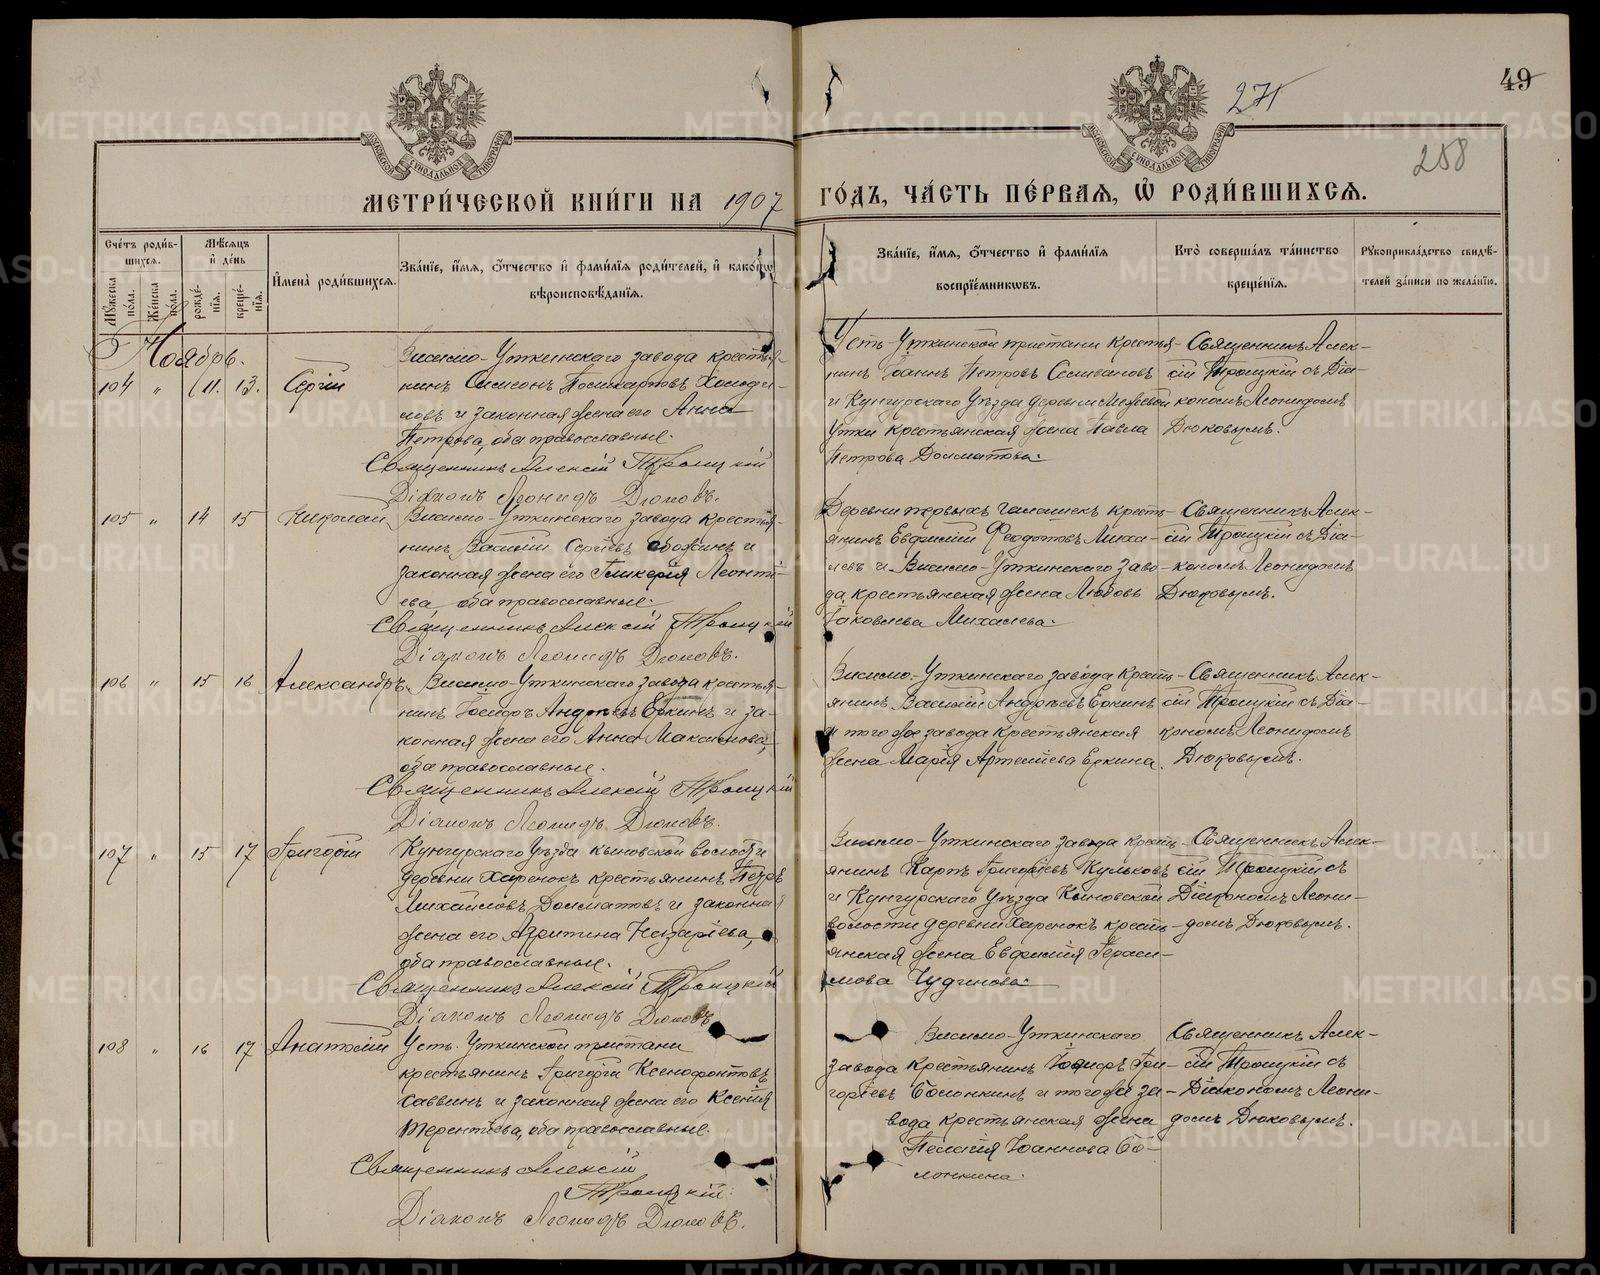 49
271
258
МЕТРИ́ЧЕСКОЙ КНИ́ГИ НА 1907 ГО́ДЪ, ЧА́СТЬ ПЕ́РВАЯ, Ѡ҆ РОДИ́ВШИХСЯ.
Счетъ родив-
шихся.
Мужеска пола.
Женска пола.
Мѣсяцъ и день
рожде-
нія.
креще-
нія.
Имена родившихся.
Званіе, имя, отчество и фамилія родителей, и какого
вѣроисповѣданія.
Званіе, имя, отчество и фамилія
воспріемниковъ.
Кто совершалъ таинство
крещенія.
Рукоприкладство свидѣ-
телей записи по желанію.
Ноябрь.
104 " 11. 13. Сергій
Висимо-Уткинскаго завода крестья-
нинъ Поликарповъ
и законная жена его Анна
Петрова, оба православные.
Священникъ Алексій Троицкій
Діаконъ Леонидъ Дюковъ.
Усть-Уткинской пристани крестья-
нинъ Іоаннъ Петровъ Селивановъ
и Кунгурскаго уѣзда деревни Межевой
Утки крестьянская жена Павла
Петрова Долматова.
Священникъ Алек-
сій Троицкій съ Діа-
кономъ Леонидомъ
Дюковымъ.
105 " 14 15 Николай
Висимо-Уткинскаго завода крестья-
нинъ Василій Сергѣевъ и
законная жена его Гликерія Леонті-
ева, оба православные.
Священникъ Алексій Троицкій
Діаконъ Леонидъ Дюковъ.
Деревни первыхъ Галашекъ кресть-
янинъ Евфимій Федотовъ Миха-
левъ и Висимо-Уткинскаго заво-
да крестьянская жена Любовь
Іаковлева Михалева.
Священникъ Алек-
сій Троицкій съ Діа-
кономъ Леонидомъ
Дюковымъ.
106 " 15 16 Александръ
Висимо-Уткинскаго завода крестья-
нинъ Іосифъ Андреевъ Еркинъ и за-
конная жена его Анна Максимова,
оба православные.
Священникъ Алексій Троицкій
Діаконъ Леонидъ Дюковъ.
Висимо-Уткинскаго завода кресть-
янинъ Василій Андреевъ Еркинъ
и того же завода крестьянская
жена Марія Артеміева Еркина.
Священникъ Алек-
сій Троицкій съ Діа-
кономъ Леонидомъ
Дюковымъ.
107 " 15 17 Григорій
Кунгурскаго уѣзда Кыновской волости
деревни Харенокъ крестьянинъ Петръ
Михайловъ Долматовъ и законная
жена его Агрипина Назаріева,
оба православные.
Священникъ Алексій Троицкій
Діаконъ Леонидъ Дюковъ
Висимо-Уткинскаго завода кресть-
янинъ Карпъ Григорьевъ Кульковъ
и Кунгурскаго уѣзда Кыновской
волости деревни Харенокъ кресть-
янская жена Евфимія Гераси-
мова Чудинова.
Священникъ Алек-
сій Троицкій съ
Діакономъ Леони-
домъ Дюковымъ.
108 " 16 17 Анатолій
Усть-Уткинской пристани
крестьянинъ Григорій Ксенофонтовъ
Саввинъ и законная жена его Ксенія
Терентіева, оба православные.
Священникъ Алексій
Троицкій.
Діаконъ Леонидъ Дюковъ.
Висимо-Уткинскаго
завода крестьянинъ Іосифъ Гри-
горіевъ Болонкинъ и того же за-
вода крестьянская жена
Пелагія Іоаннова Бо-
лонкина.
Священникъ Алек-
сій Троицкій съ
Діакономъ Леони-
домъ Дюковымъ.
METRIKI.GASO-URAL.RU